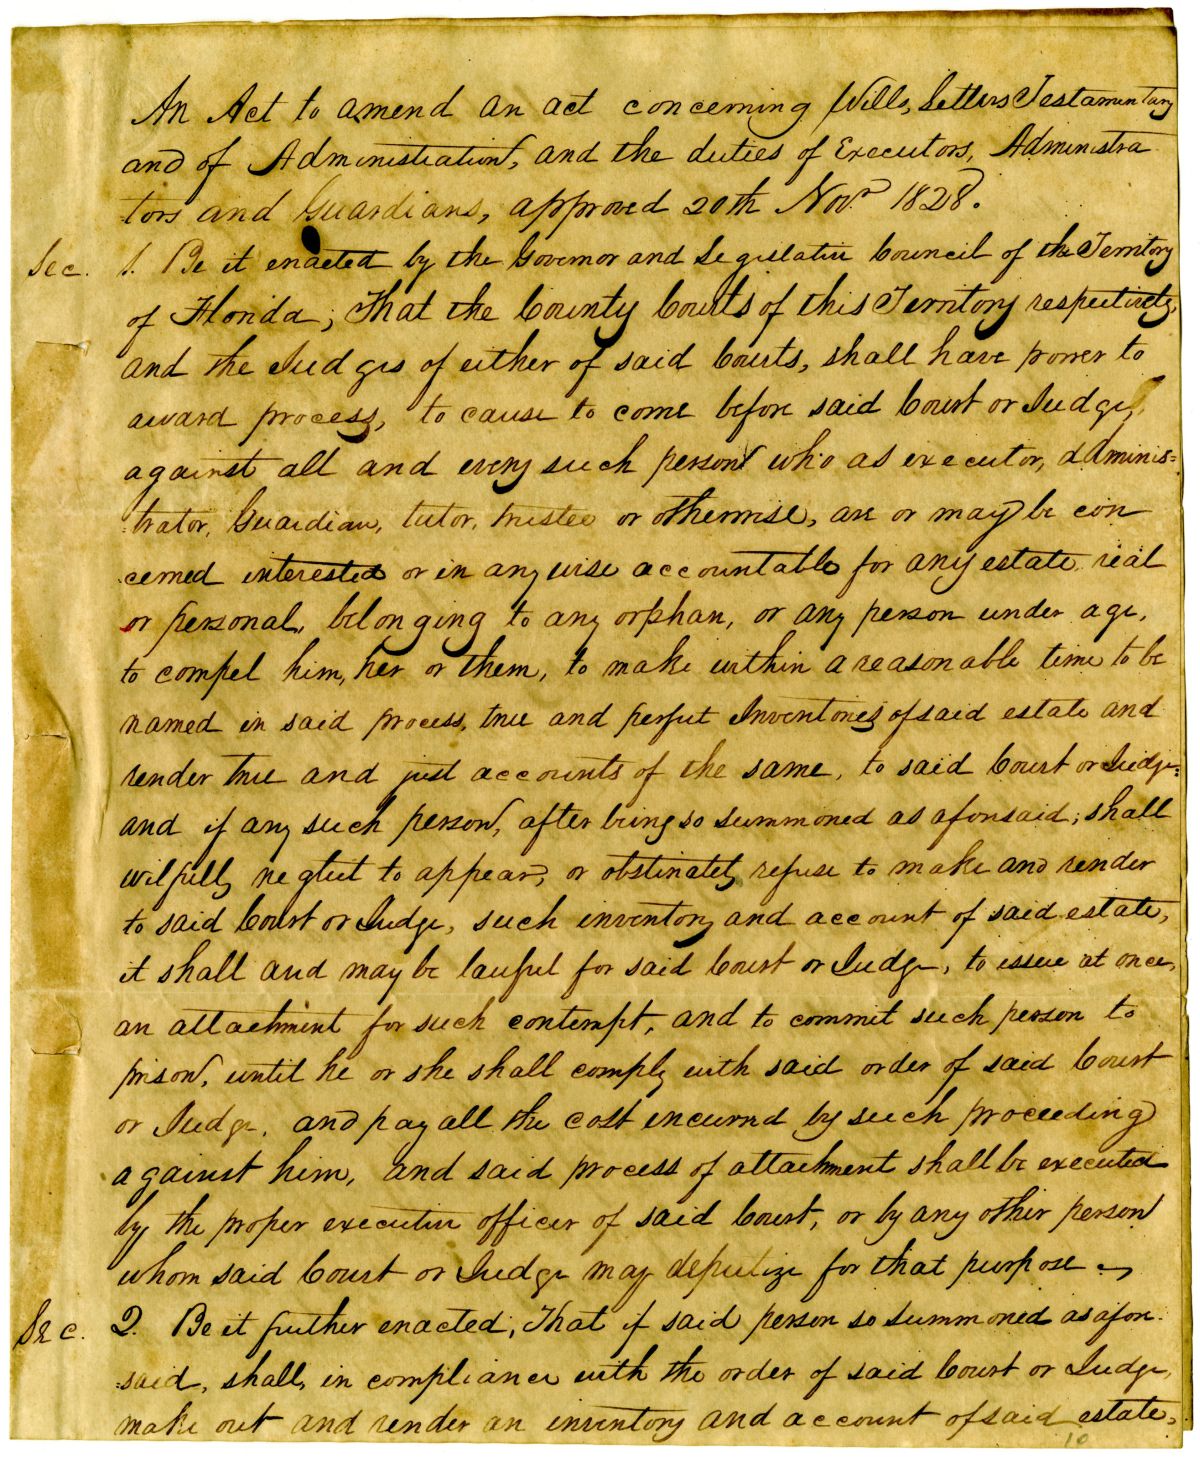 An Act to amend an act concerning Wills, Letters Testamentary
and of Administration, and the duties of Executors, Administra
tors and Guardians, approved 20th Novr 1828.
Sec. 1. Be it enacted by the Governor and Legislative Council of the Territory
of Florida; That the County Courts of this Territory respectively,
and the Judges of either of said Courts, shall have power to
award process, to cause to come before said Court or Judge,
against all and every such person who as executor, adminis=
trator, Guardian, tutor, trustee or otherwise, are or may be con
cerned interested or in any wise accountable for any estate real
or personal, belonging to any orphan, or any person under age,
to compel him, her or them, to make within a reasonable time to be
named in said process, true and perfect Inventories of said estate and
render true and just accounts of the same, to said Court or Judge:
and if any such person, after being so summoned as aforesaid; shall
wilfully neglect to appear, or obstinately refuse to make and render
to said Court or Judge, such inventory and account of said estate,
it shall and may be lawful for said Court or Judge, to issue at once,
an attachment for such contempt, and to commit such person to
prison, until he or she shall comply with said order of said Court
or Judge, and pay all the cost incurred by such proceeding
against him, and said process of attachment shall be executed
by the proper executive officer of said Court, or by any other person
whom said Court or Judge may deputize for that purpose.
Sec. 2. Be it further enacted, That if said person so summoned as afore
said, shall, in compliance with the order of said Court or Judge,
make out and render an inventory and account of said estate,
10